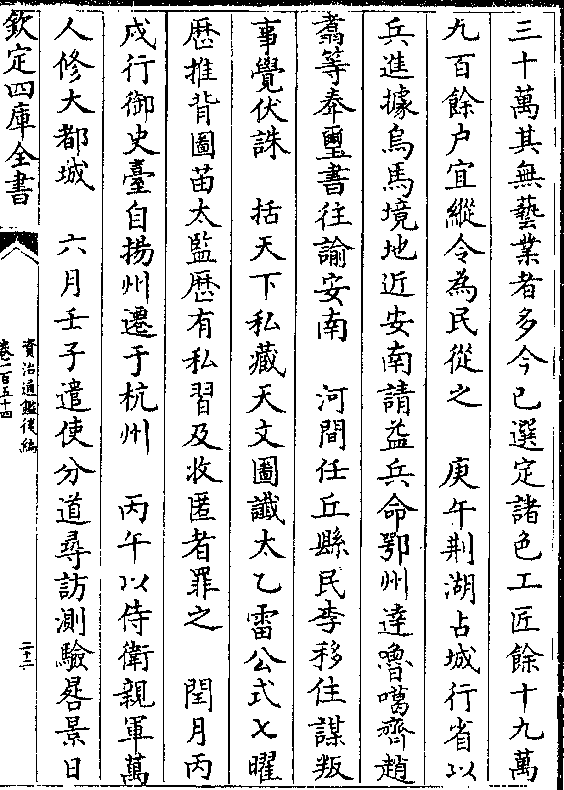 三十萬其無藝業者多今已選定諸色工匠餘十九萬
九百餘户宜縱令為民從之　庚午荆湖占城行省以
兵進據烏馬境地近安南請益兵命鄂州達嚕噶齊趙
翥等奉璽書往諭安南　河間任丘縣民李移住謀叛
事覺伏誅　括天下私藏天文圖讖太乙雷公式七曜
厯推背圖苗太監厯有私習及收匿者罪之　閏月丙
戍行御史臺自揚州遷于杭州　丙午以侍衛親軍萬
人修大都城　六月壬子遣使分道尋訪測驗晷景日
欽定四庫全書
資治通鑑後編
卷一百五十四
二十二